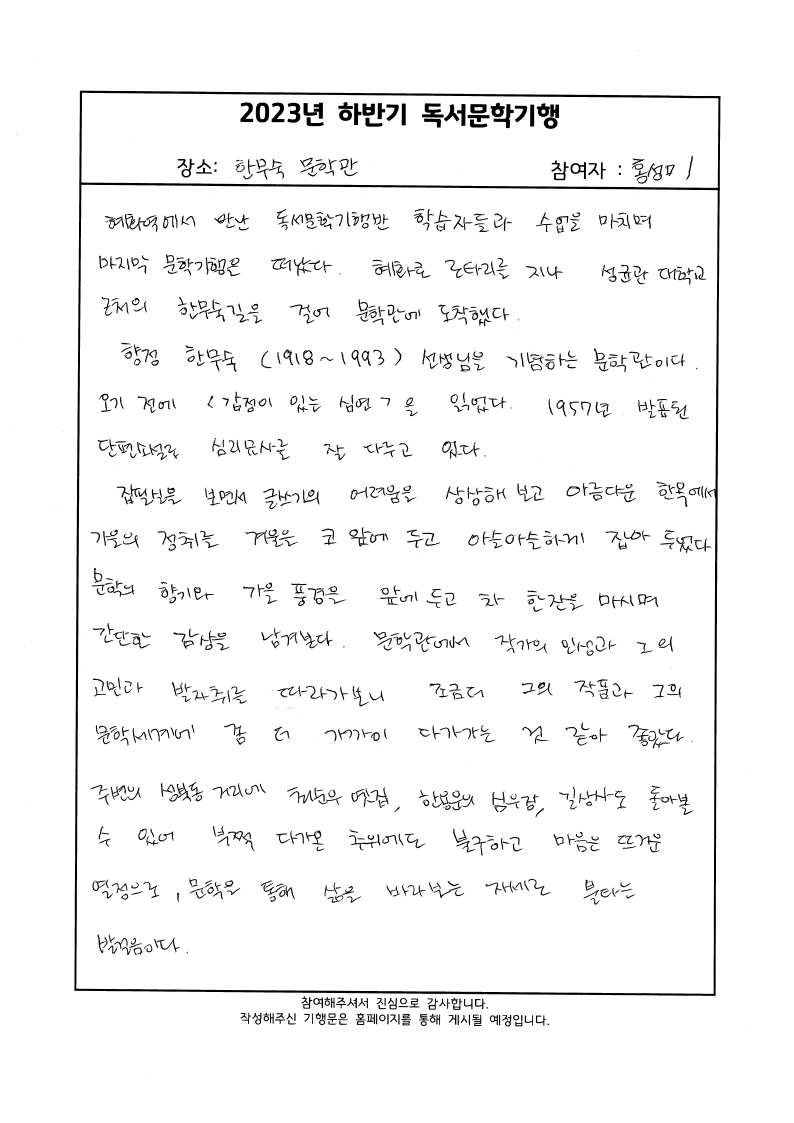 2023년 하반기 독서문학기행
장소: 한무숙 문학관 참여자 : 홍성미
혜화역에서 만난 독서문학기행반 학습자들과 수업을 마치며
마지막 문학기행은 떠났다. 혜화로 로타리를 지나 성균관 대학교
근처의 한무숙길을 걸어 문학관에 도착했다.
향정 한무숙 (1918~1993) 선생님을 기념하는 문학관이다.
오기 전에 <감정이 있는 심연>을 읽었다. 1957년 발표된
단편소설로 심리묘사를 잘 다루고 있다.
집필실을 보면서 글쓰기의 어려움을 상상해 보고 아름다운 한옥에서
가을의 정취를 겨울을 코 앞에 두고 아슬아슬하게 잡아 두었다
문학의 향기와 가을 풍경을 앞에 두고 차 한잔을 마시며
간단한 감상을 남겨본다. 문학관에서 작가의 인생과 그의
고민과 발자취를 따라가보니 조금더 그의 작품과 그의
문학세계에 좀 더 가까이 다가가는 것 같아 좋았다.
주변의 성북동 거리에 최순우 옛집, 한용운의 심우장, 길상사도 돌아볼
수 있어 부쩍 다가온 추위에도 불구하고 마음은 뜨거운
열정으로, 문학을 통해 삶을 바라보는 자세로 불타는
발걸음이다.
참여해주셔서 진심으로 감사합니다.
작성해주신 기행문은 홈페이지를 통해 게시될 예정입니다.